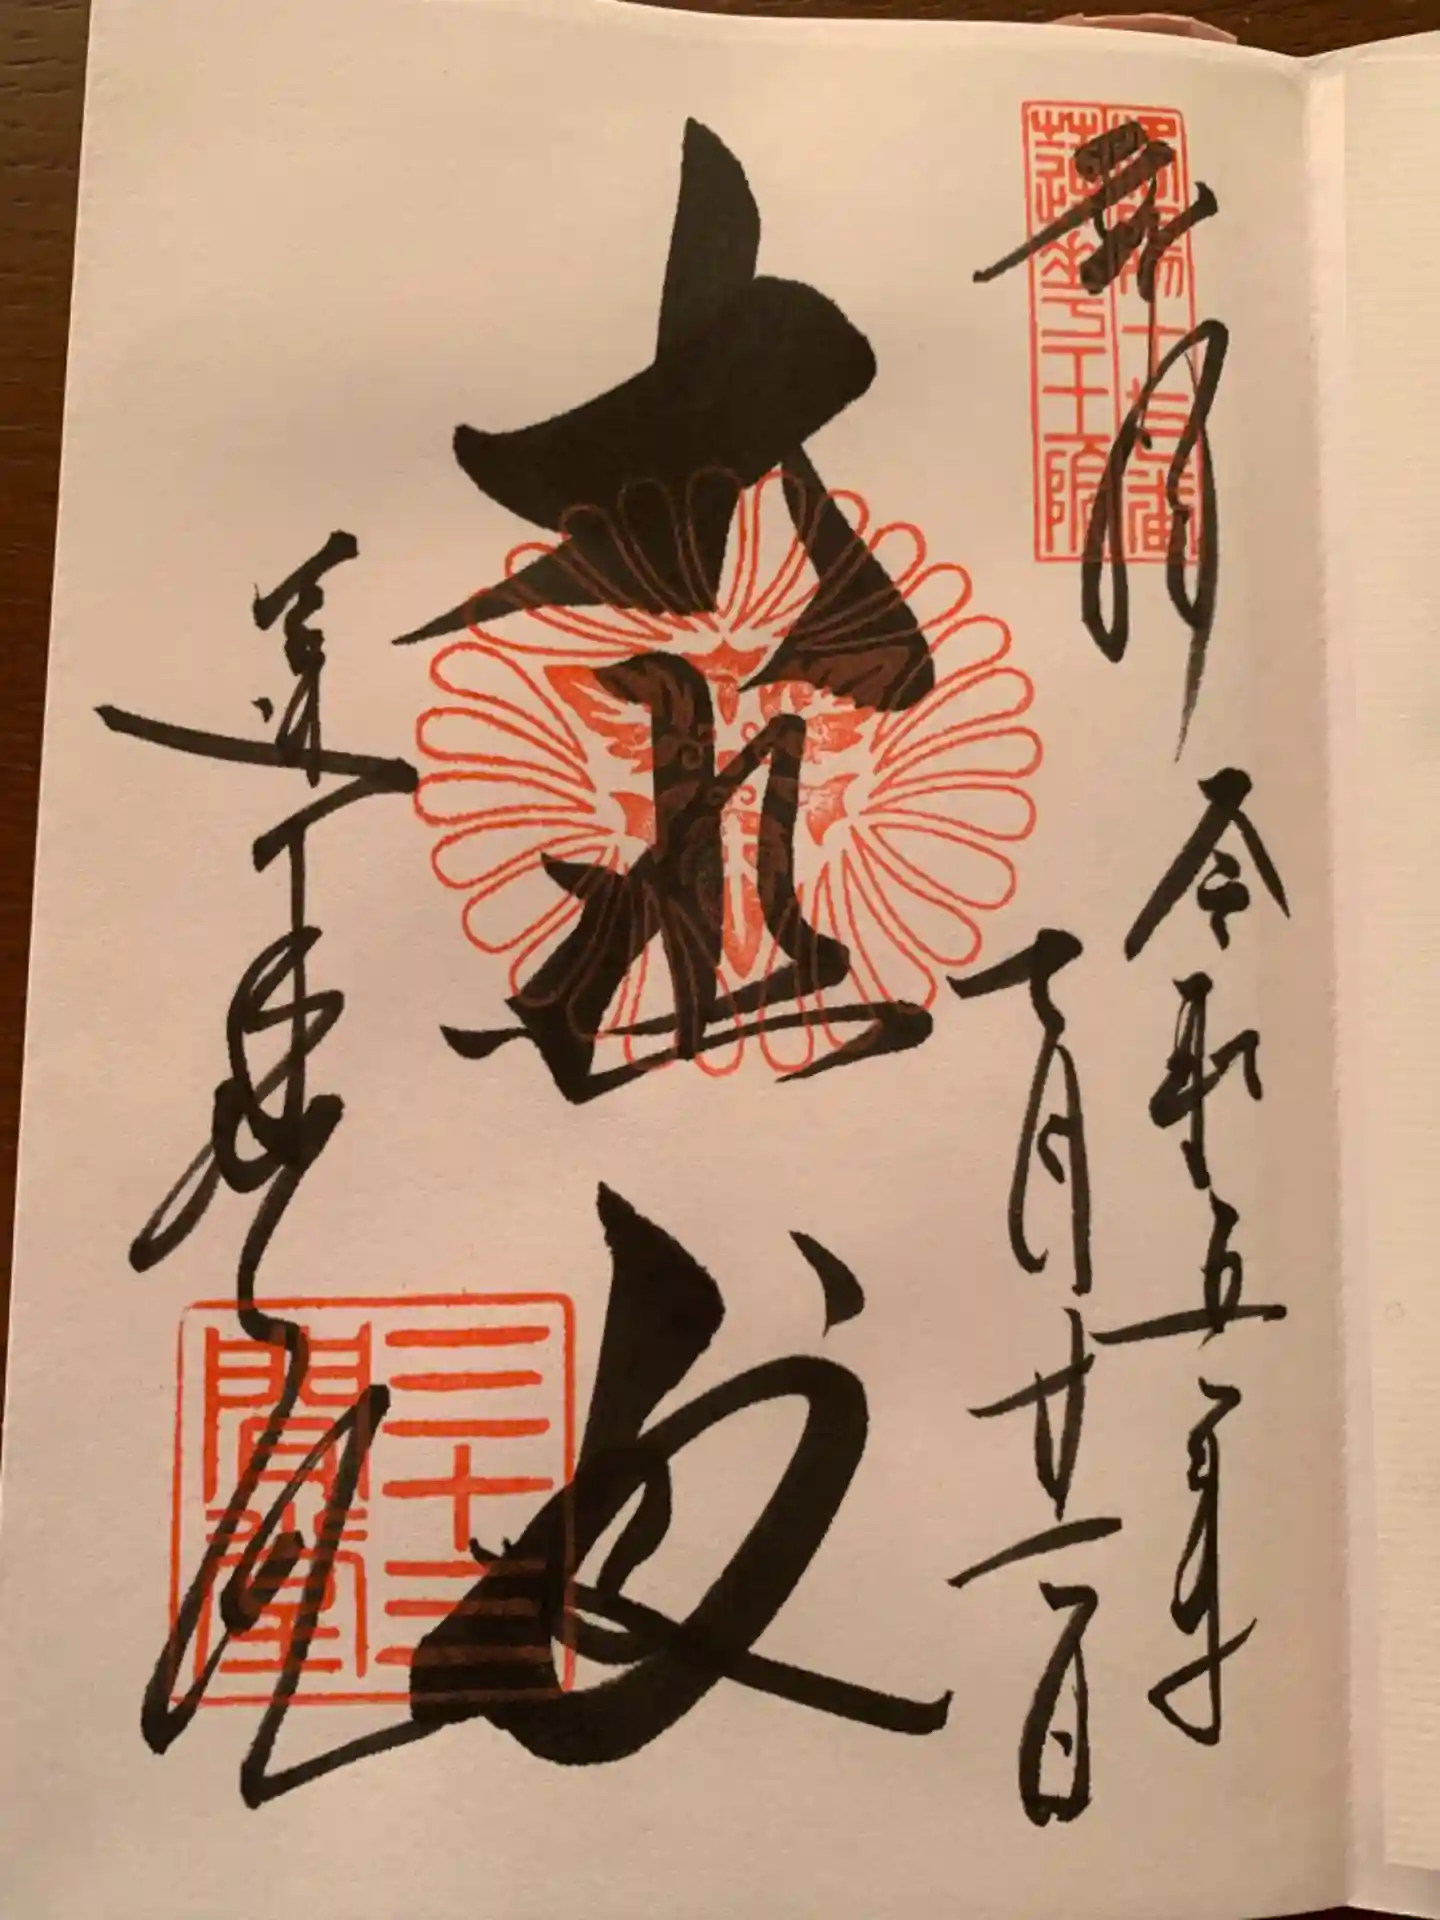 奉拝
洛陽十七番
蓮華王院
令和五年
月廿一日
大悲殿
蓮華王院
三十三
間堂